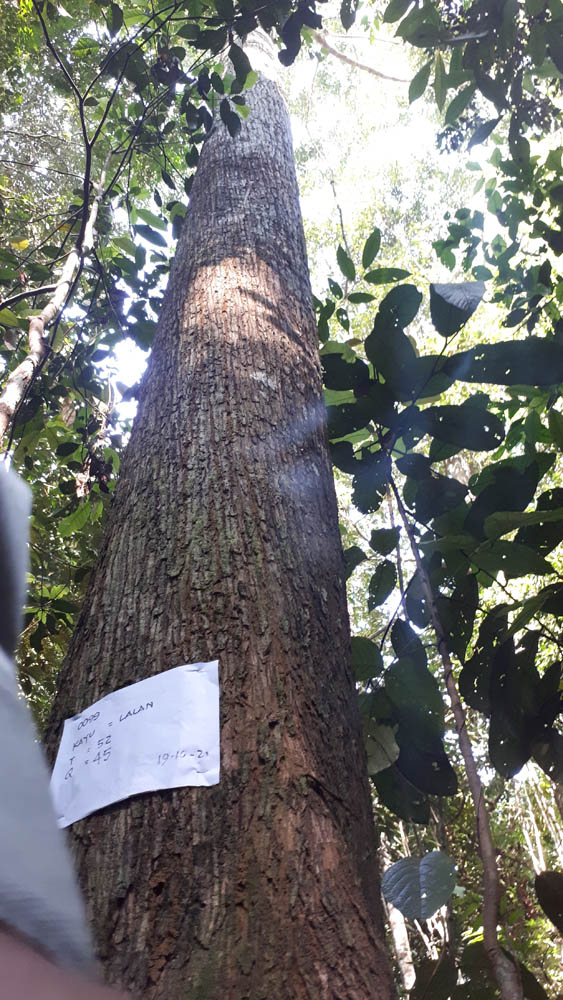 0099
KAYU = LALAN
T = 52
Q = 45
19-10-21